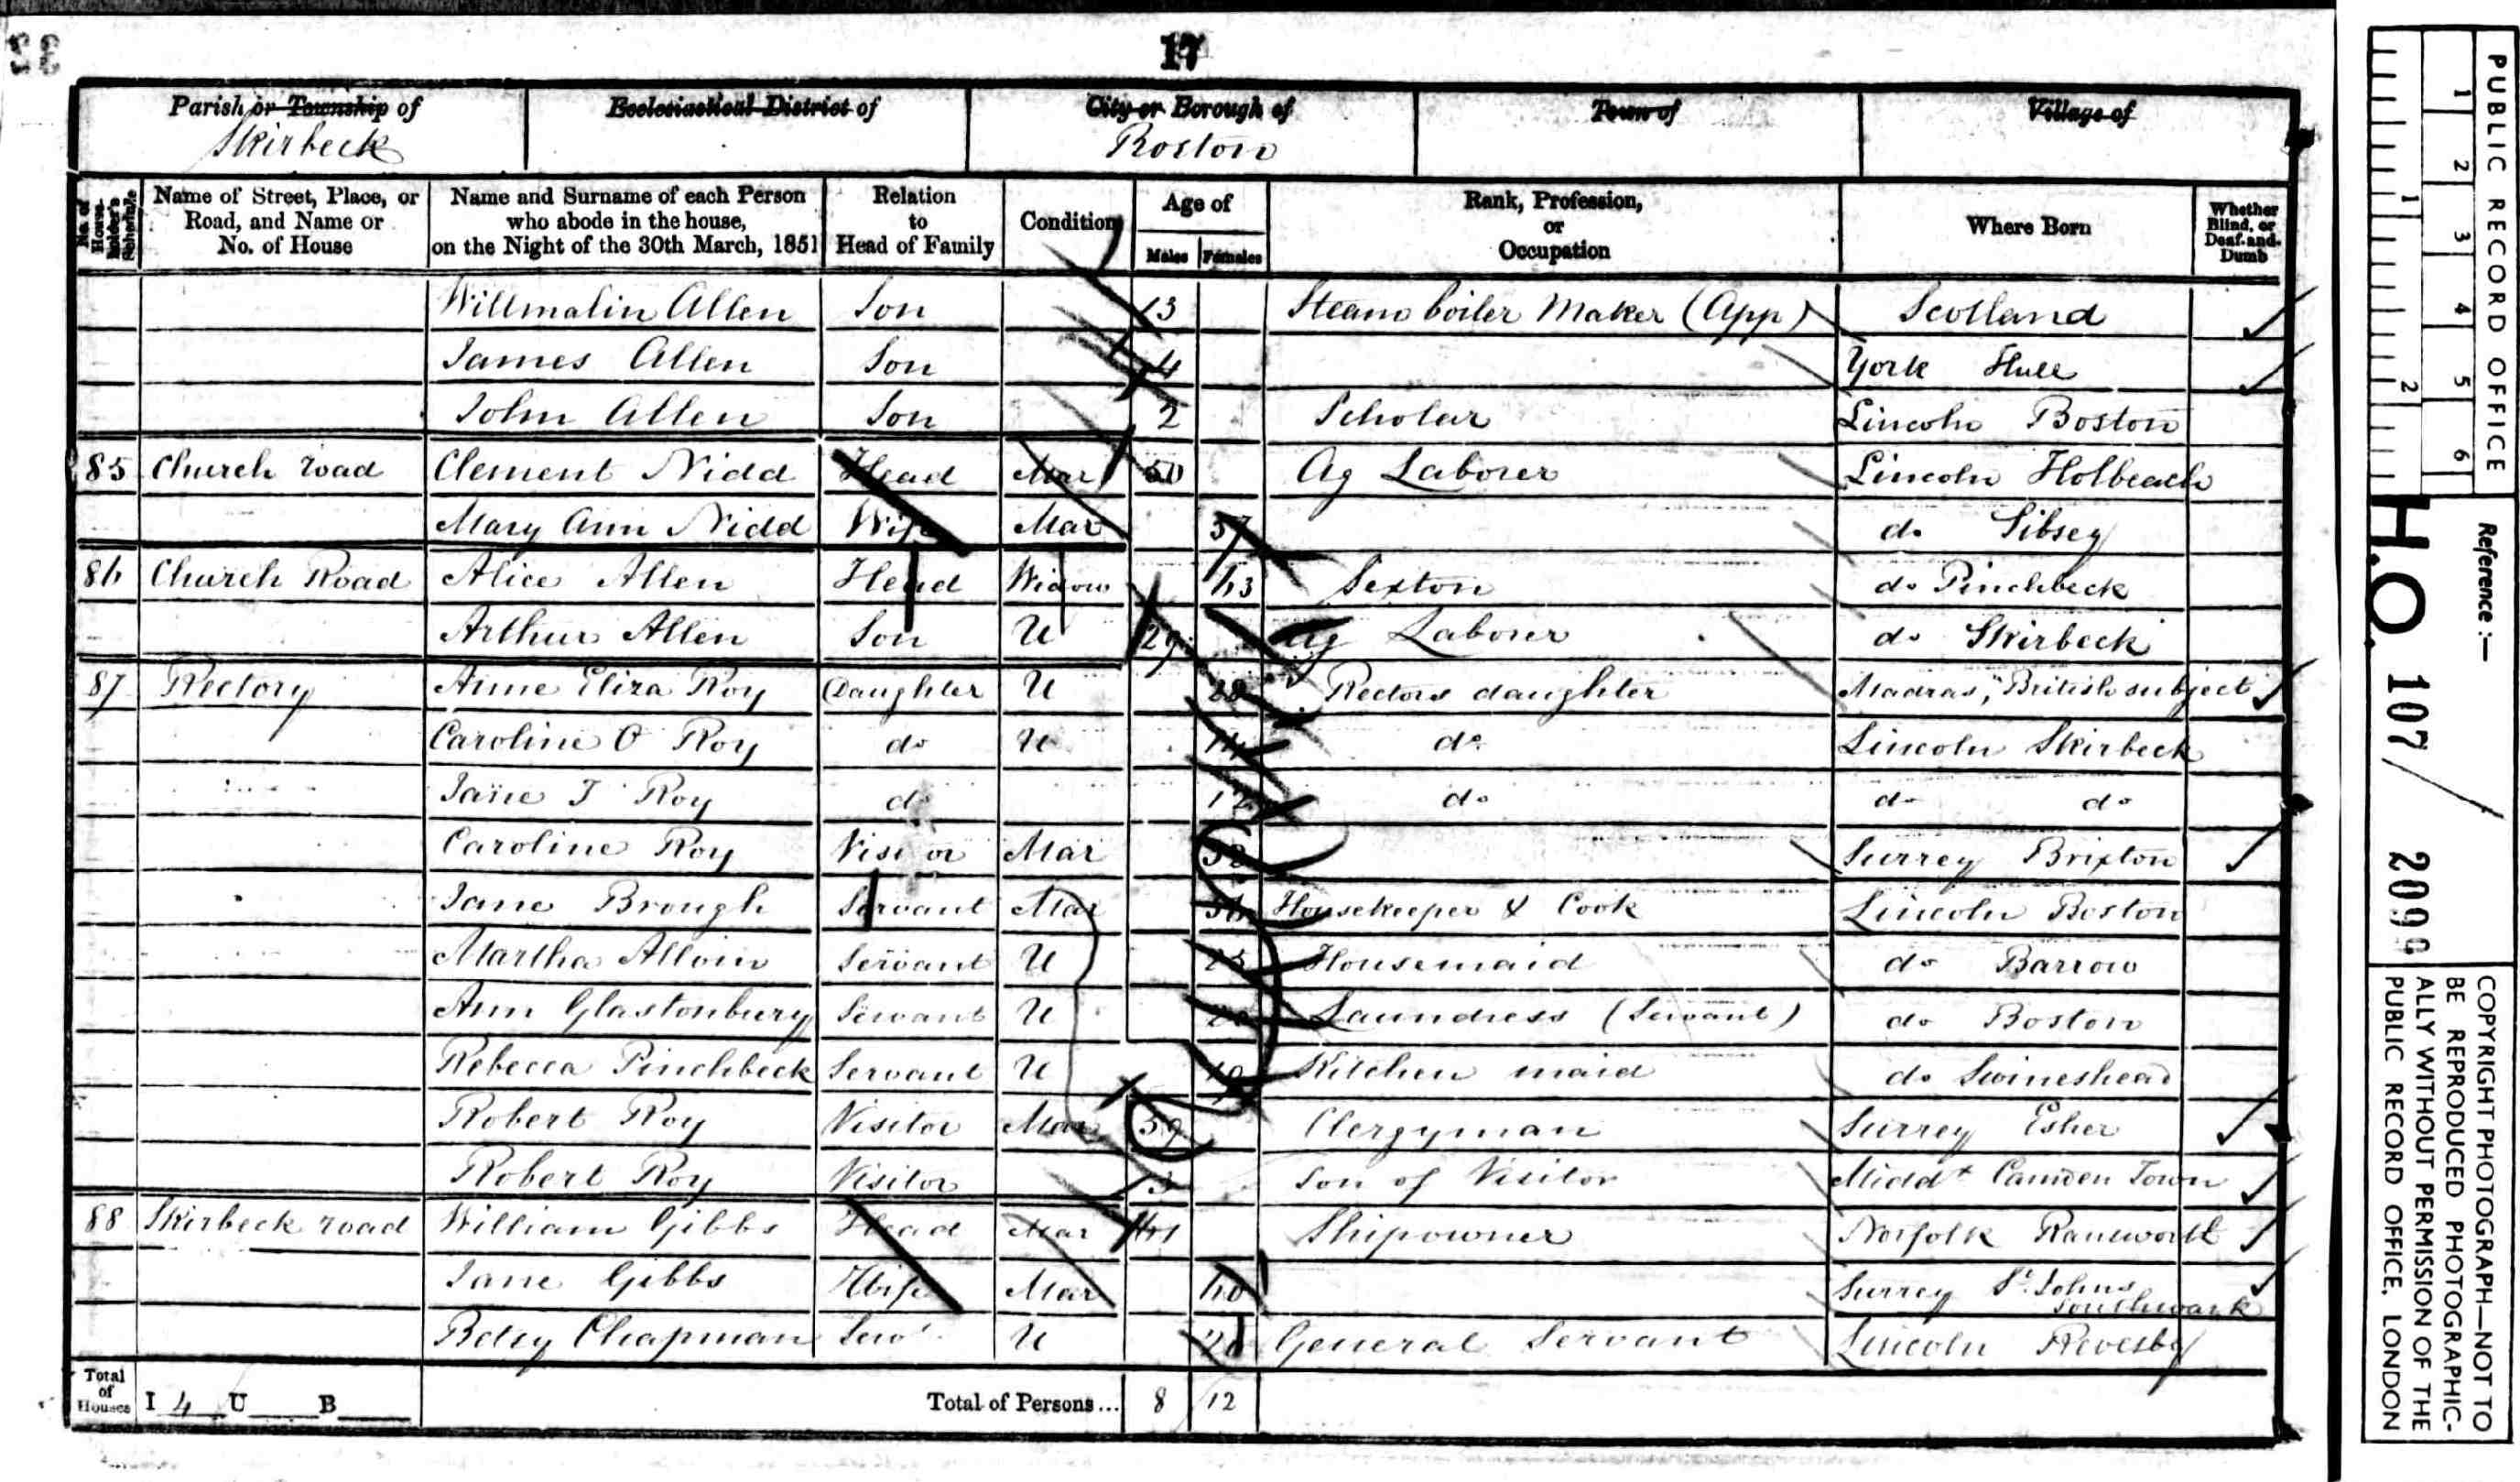 17
Parish or Township of Skirbeck
Ecclesiastical District of
City or Borough of Boston
Town of
Village of
No. of House-holder's Schedule
Name of Street, Place, or Road, and Name or No. of House
Name and Surname of each Person who abode in the house, on the Night of the 30th March, 1851
Relation to Head of Family
Condition
Age of
Males Females
Rank, Profession, or Occupation
Where Born
Whether Blind, or Deaf-and-Dumb
Willmalin Allen Son 13 Steam boiler Maker (App) Scotland
James Allen Son 4 York Hull
John Allen Son 2 Scholar Lincoln Boston
85 Church road Clement Nidd Head Mar 50 Ag Laborer Lincoln Holbeach
Mary Ann Nidd Wife Mar 37 do Sibsey
86 Church Road Alice Allen Head Widow 63 Sexton do Pinchbeck
Arthur Allen Son U 29 Ag Laborer do Skirbeck
87 Rectory Anne Eliza Roy Daughter U Rectors daughter Madras, British subject
Caroline O Roy do U 14 do Lincoln Skirbeck
Jane T Roy do 12 do do do
Caroline Roy Visitor Mar Surrey Brixton
Jane Brough Servant Mar Housekeeper & Cook Lincoln Boston
Martha Servant U Housemaid do Barrow
Ann Glastonbury Servant U Laundress (Servant) do Boston
Rebecca Pinchbeck Servant U 19 Kitchen maid do Swineshead
Robert Roy Visitor Mar 59 Clergyman Surrey Esher
Robert Roy Visitor 3 Son of Visitor Middx Camden Town
88 Skirbeck road William Gibbs Head Mar 41 Shipowner Norfolk Ranworth
Jane Gibbs Wife Mar 40 Surrey St Johns Southwark
Betsy Chapman Servt U General Servant Lincoln Revesby
Total of Houses I 4 U B Total of Persons... 8 12
PUBLIC RECORD OFFICE
1 2 3 4 5 6
1 2
Reference:—
H.O. 107/2099
COPYRIGHT PHOTOGRAPH—NOT TO BE REPRODUCED PHOTOGRAPHICALLY WITHOUT PERMISSION OF THE PUBLIC RECORD OFFICE, LONDON